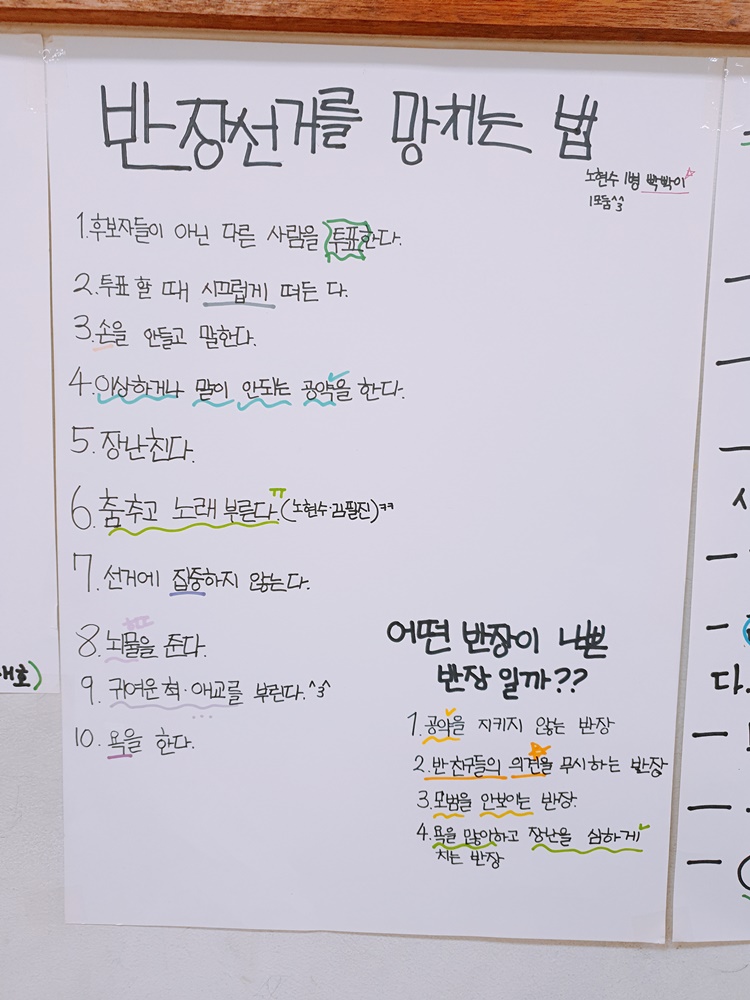 반장선거를 망치는 법
노현수 1병 빡빡이
1모둠^^3
1.후보자들이 아닌 다른 사람을 투표한다.
2.투표 할 때 시끄럽게 떠든 다.
3.손을 안들고 말한다.
4.이상하거나 말이 안되는 공약을 한다.
5.장난친다.
6.춤추고 노래 부른다.ㅠ(노현수·김필진)ㅋㅋ
7.선거에 집중하지 않는다.
8.뇌물을 준다.
9.귀여운 척·애교를 부린다.^3^
10.욕을 한다.
어떤 반장이 나쁜
반장 일까??
1.공약을 지키지 않는 반장
2.반 친구들의 의견을 무시하는 반장
3.모범을 안보이는 반장.
4.욕을 많이하고 장난을 심하게
치는 반장
호)
다.